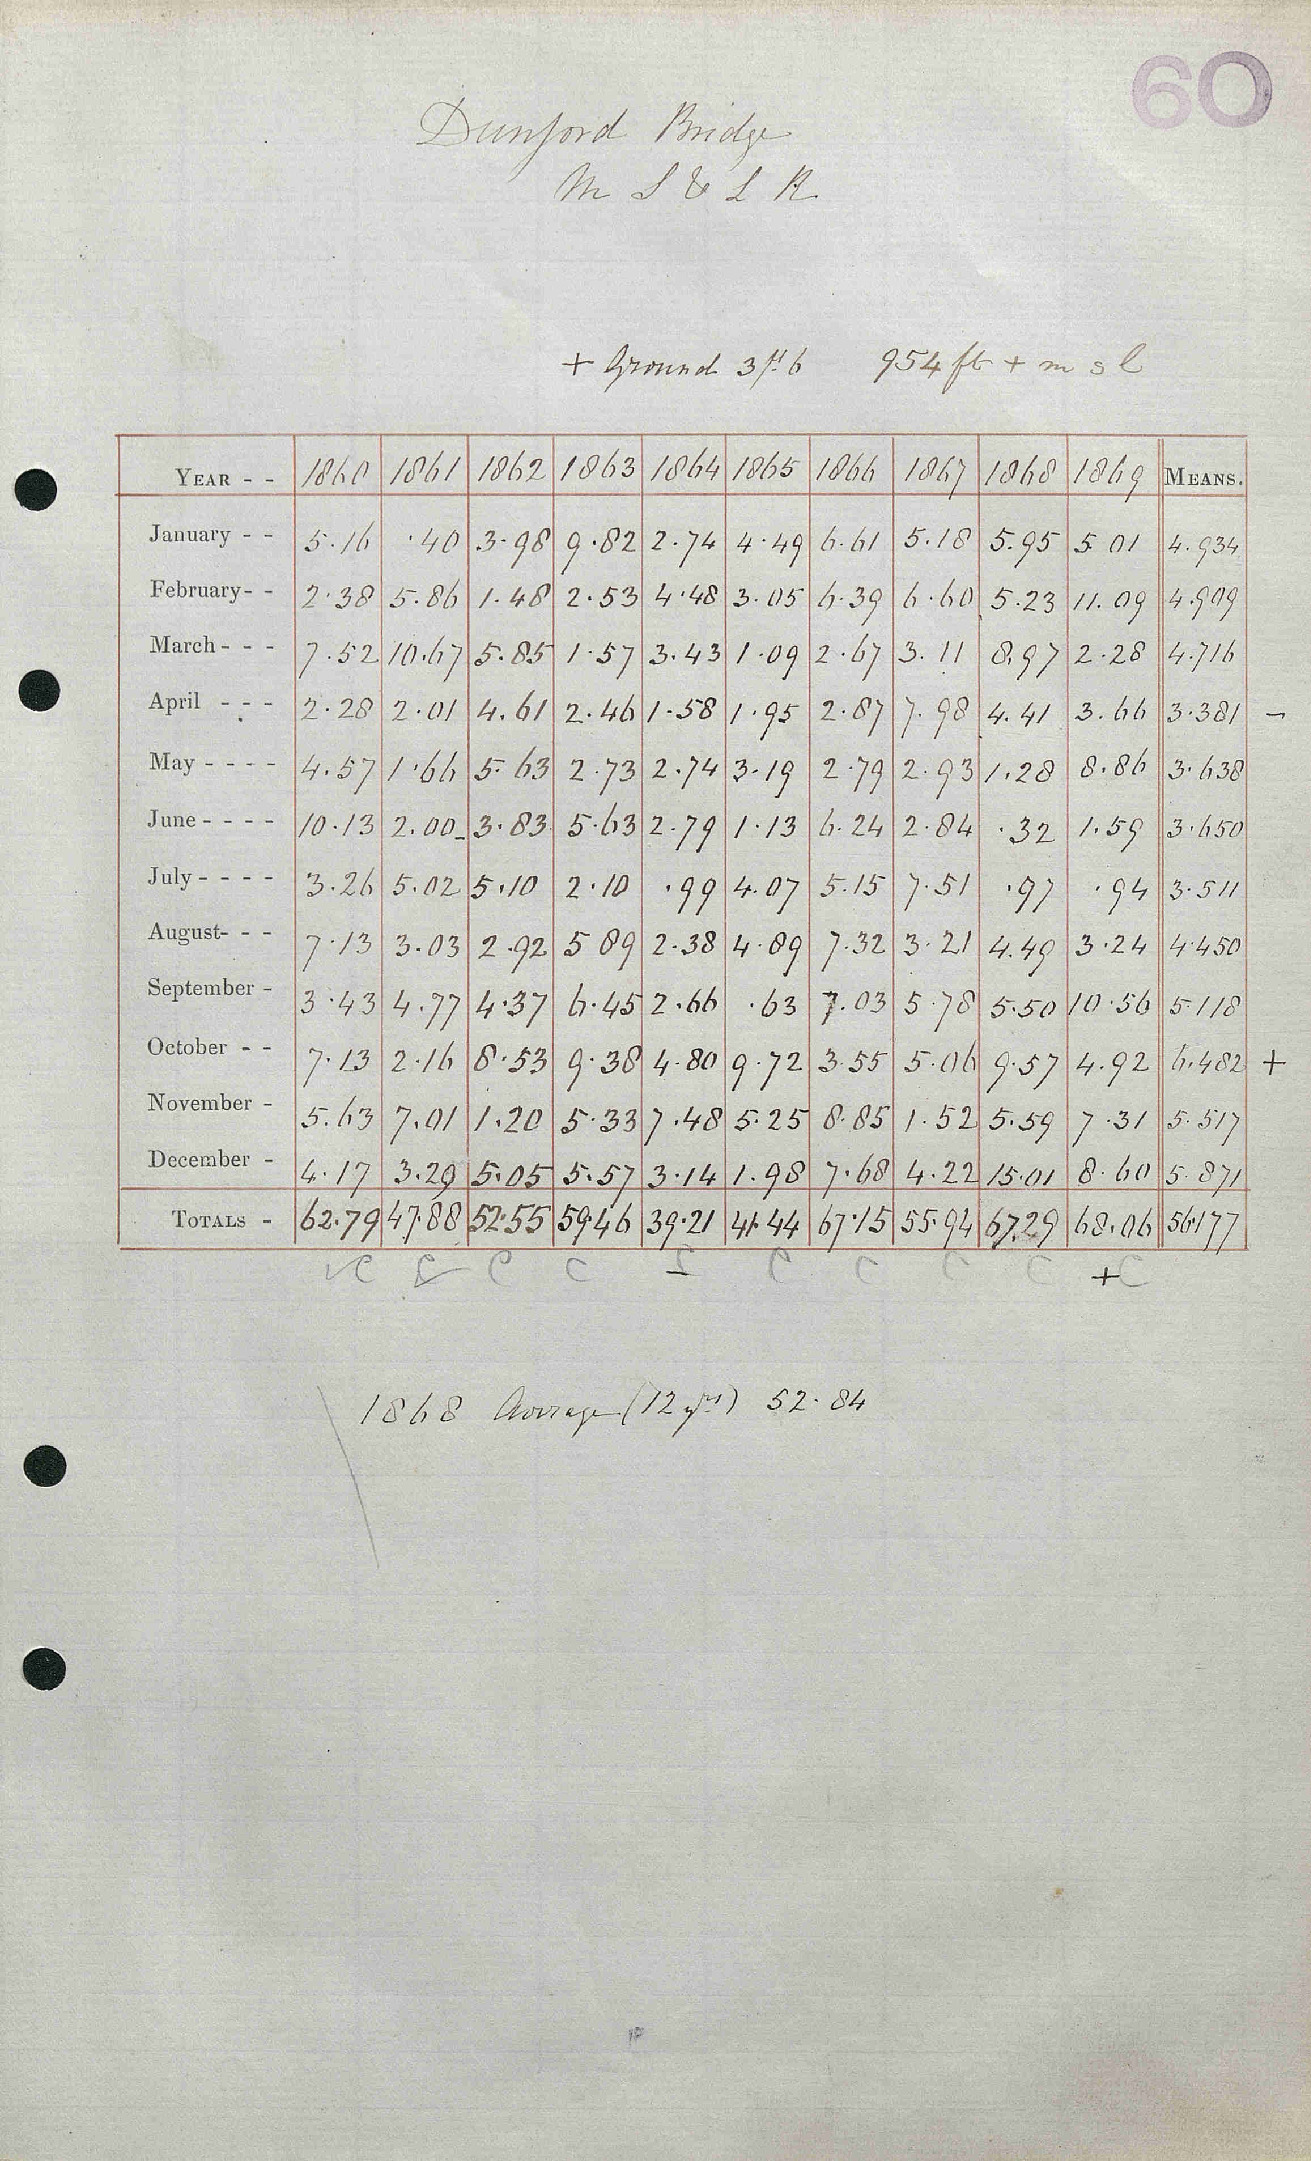 60
Dunford Bridge
M S & L R
+ Ground 3ft 6 954 ft + m s l
YEAR - - 1860 1861 1862 1863 1864 1865 1866 1867 1868 1869 MEANS.
January - - 5.16 .40 3.98 9.82 2.74 4.49 6.61 5.18 5.95 5 01 4.934
February- - 2.38 5.86 1.48 2.53 4.48 3.05 6.39 6.60 5.23 11.09 4.909
March - - - 7.52 10.67 5.85 1.57 3.43 1.09 2.67 3.11 8.97 2.28 4.716
April - - - 2.28 2.01 4.61 2.46 1.58 1.95 2.87 7.98 4.41 3.66 3.381 -
May - - - - 4.57 1.66 5.63 2.73 2.74 3.19 2.79 2.93 1.28 8.86 3.638
June - - - - 10.13 2.00 3.83 5.63 2.79 1.13 6.24 2.84 .32 1.59 3.650
July - - - - 3.26 5.02 5.10 2.10 .99 4.07 5.15 7.51 .97 .94 3.511
August- - - 7.13 3.03 2.92 5 89 2.38 4.89 7.32 3.21 4.49 3.24 4.450
September - 3.43 4.77 4.37 6.45 2.66 .63 7.03 5.78 5.50 10.56 5.118
October - - 7.13 2.16 8.53 9.38 4.80 9.72 3.55 5.06 9.57 4.92 6.482 +
November - 5.63 7.01 1.20 5.33 7.48 5.25 8.85 1.52 5.59 7.31 5.517
December - 4.17 3.29 5.05 5.57 3.14 1.98 7.68 4.22 15.01 8.60 5.871
TOTALS - 62.79 47.88 52.55 59.46 39.21 41.44 67.15 55.94 67.29 68.06 56.177
C C C C - C C C C + C
1868 Average (12 yrs) 52.84